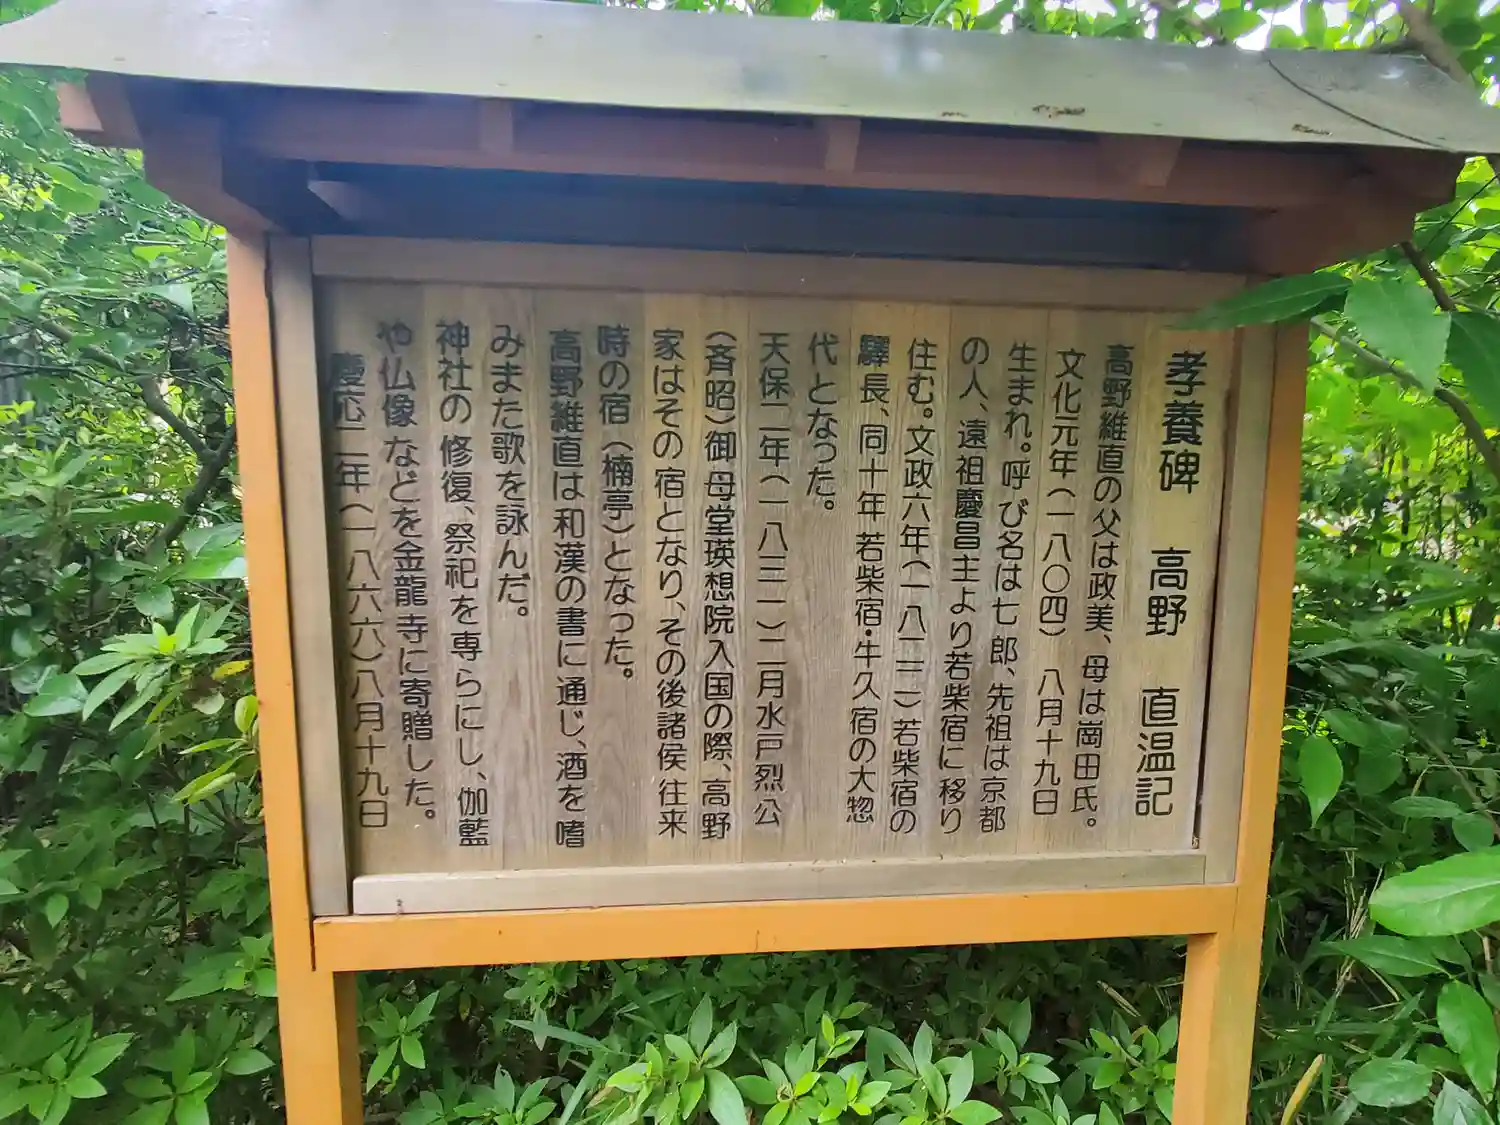 孝養碑 高野 直温記
高野維直の父は政美、母は岡田氏。
文化元年(一八〇四)八月十九日
生まれ。呼び名は七郎、先祖は京都
の人、遠祖慶昌主より若柴宿に移り
住む。文政六年(一八二三)若柴宿の
驛長、同十年若柴宿・牛久宿の大惣
代となった。
天保二年(一八三一)二月水戸烈公
(斉昭)御母堂瑛想院入国の際、高野
家はその宿となり、その後諸侯往来
時の宿(楠亭)となった。
高野維直は和漢の書に通じ、酒を嗜
みまた歌を詠んだ。
神社の修復、祭祀を専らにし、伽藍
や仏像などを金龍寺に寄贈した。
慶応二年(一八六六)八月十九日